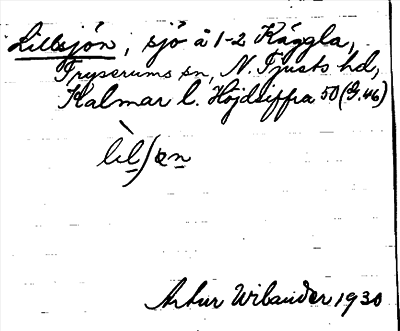 Lillsjön, sjö å 1-2 Käggla,
Fryserums sn, N. Tjusts hd,
Kalmar l. Höjdsiffra 50 (G.46)
Artur Wibander 1930